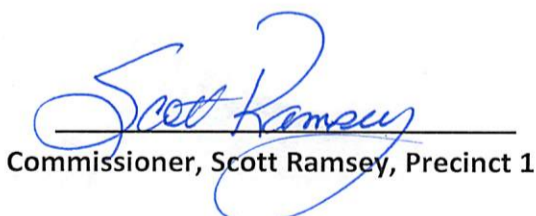 Scott Ramsey
Commissioner, Scott Ramsey, Precinct 1